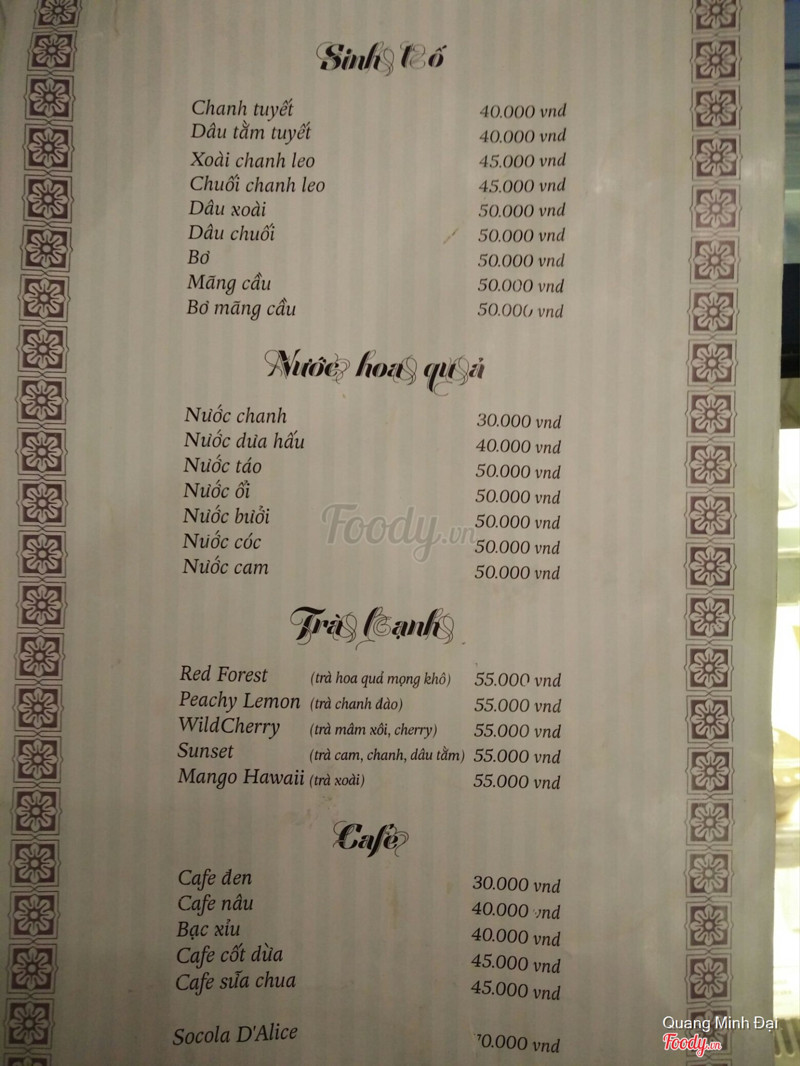 Sinh tố
Chanh tuyết 40.000 vnd
Dâu tằm tuyết 40.000 vnd
Xoài chanh leo 45.000 vnd
Chuối chanh leo 45.000 vnd
Dâu xoài 50.000 vnd
Dâu chuối 50.000 vnd
Bơ 50.000 vnd
Mãng cầu 50.000 vnd
Bơ mãng cầu 50.000 vnd
Nước hoa quả
Nước chanh 30.000 vnd
Nước dưa hấu 40.000 vnd
Nước táo 50.000 vnd
Nước ổi 50.000 vnd
Nước bưởi 50.000 vnd
Foody.vn
Nước cóc 50.000 vnd
Nước cam 50.000 vnd
Trà lạnh
Red Forest (trà hoa quả mọng khô) 55.000 vnd
Peachy Lemon (trà chanh đào) 55.000 vnd
WildCherry (trà mâm xôi, cherry) 55.000 vnd
Sunset (trà cam, chanh, dâu tằm) 55.000 vnd
Mango Hawaii (trà xoài) 55.000 vnd
Cafe
Cafe đen 30.000 vnd
Cafe nâu 40.000 vnd
Bạc xỉu 40.000 vnd
Cafe cốt dừa 45.000 vnd
Cafe sữa chua 45.000 vnd
Socola D'Alice 70.000 vnd
Quang Minh Đại
Foody.vn